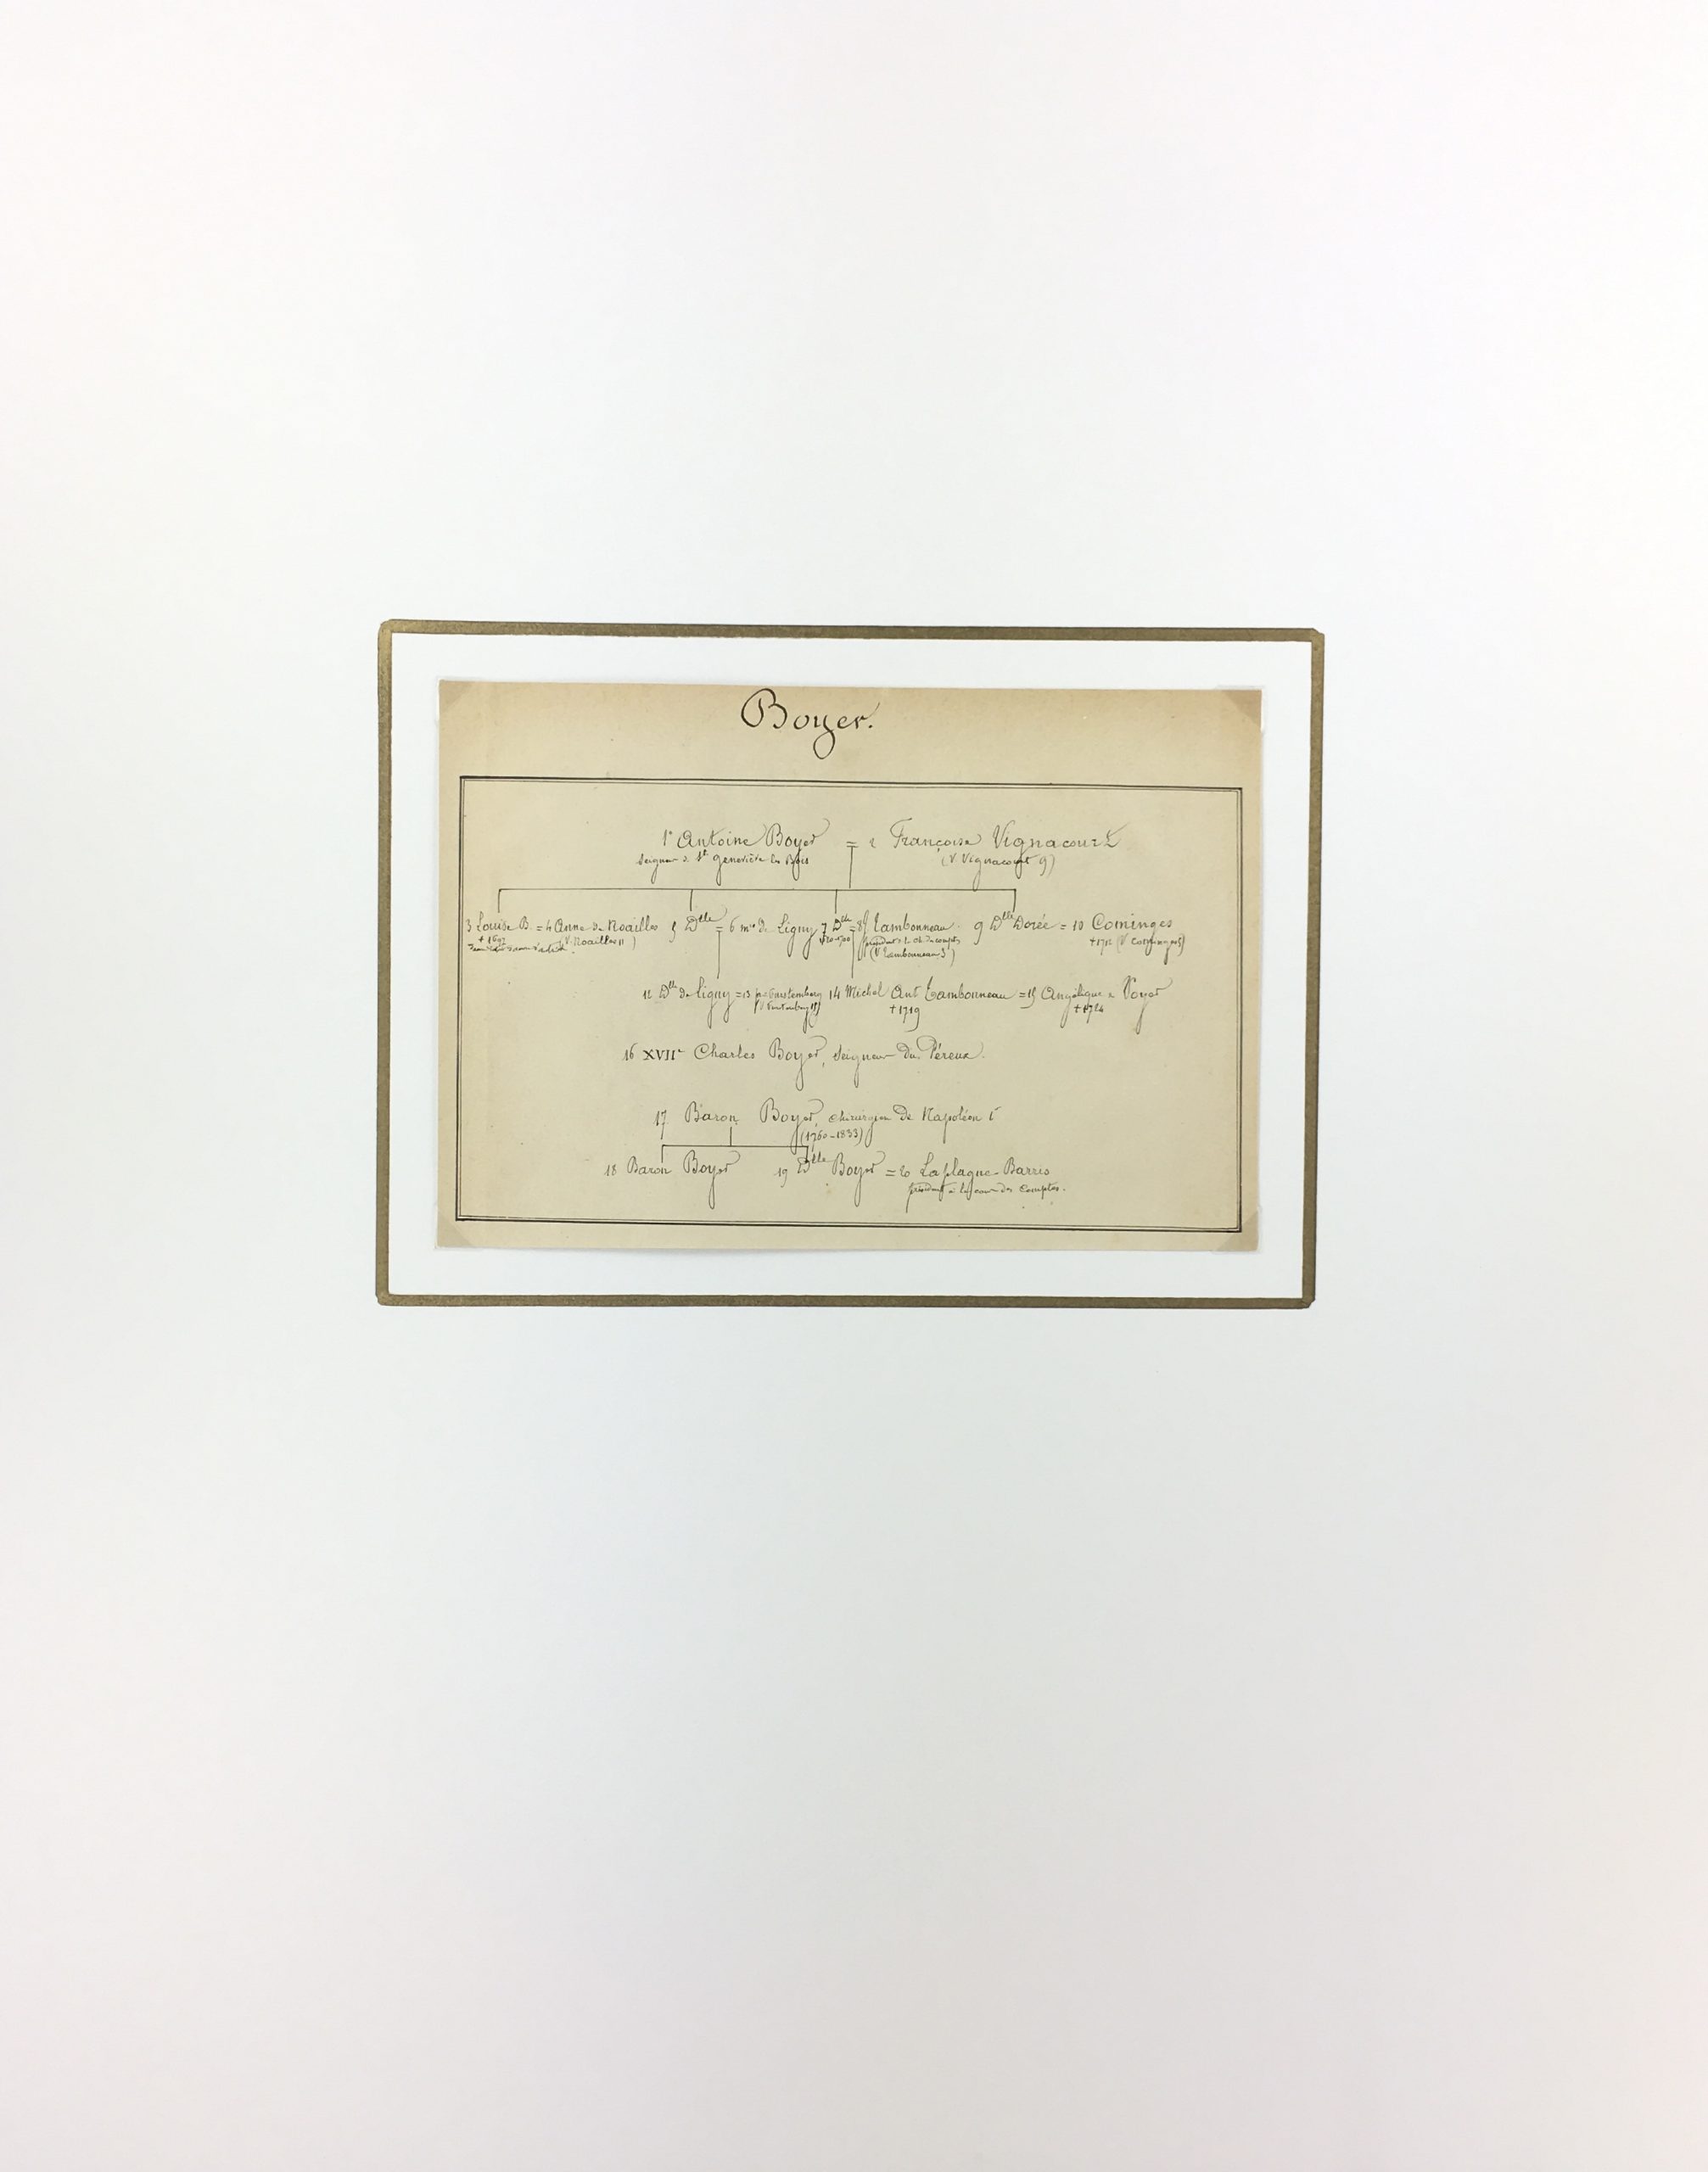 Boyer.
1° Antoine Boyer = 2 Françoise Vignacourt
Seigneur de Ste Geneviève les Bois (V Vignacourt 9)
3 Louise B. = 4 Anne de Noailles 5 Dlle = 6 mis de Ligny 7 Dlle = 8 Tambonneau 9 Dlle Dorée = 10 Cominges
+ 1697 (V. Noailles 11) président à la ch. des comptes +1712 (V Comminges)
(V Tambonneau 3)
12 Dlle de Ligny = 13 14 Michel Ant Tambonneau = 15 Angélique de Voyer
+ 1719 + 1724
16 XVIIe Charles Boyer, seigneur du Péreux.
17 Baron Boyer, chirurgien de Napoléon 1r
(1760-1833)
18 Baron Boyer 19 Dlle Boyer = 20 Laplagne-Barris
président à la cour des Comptes.